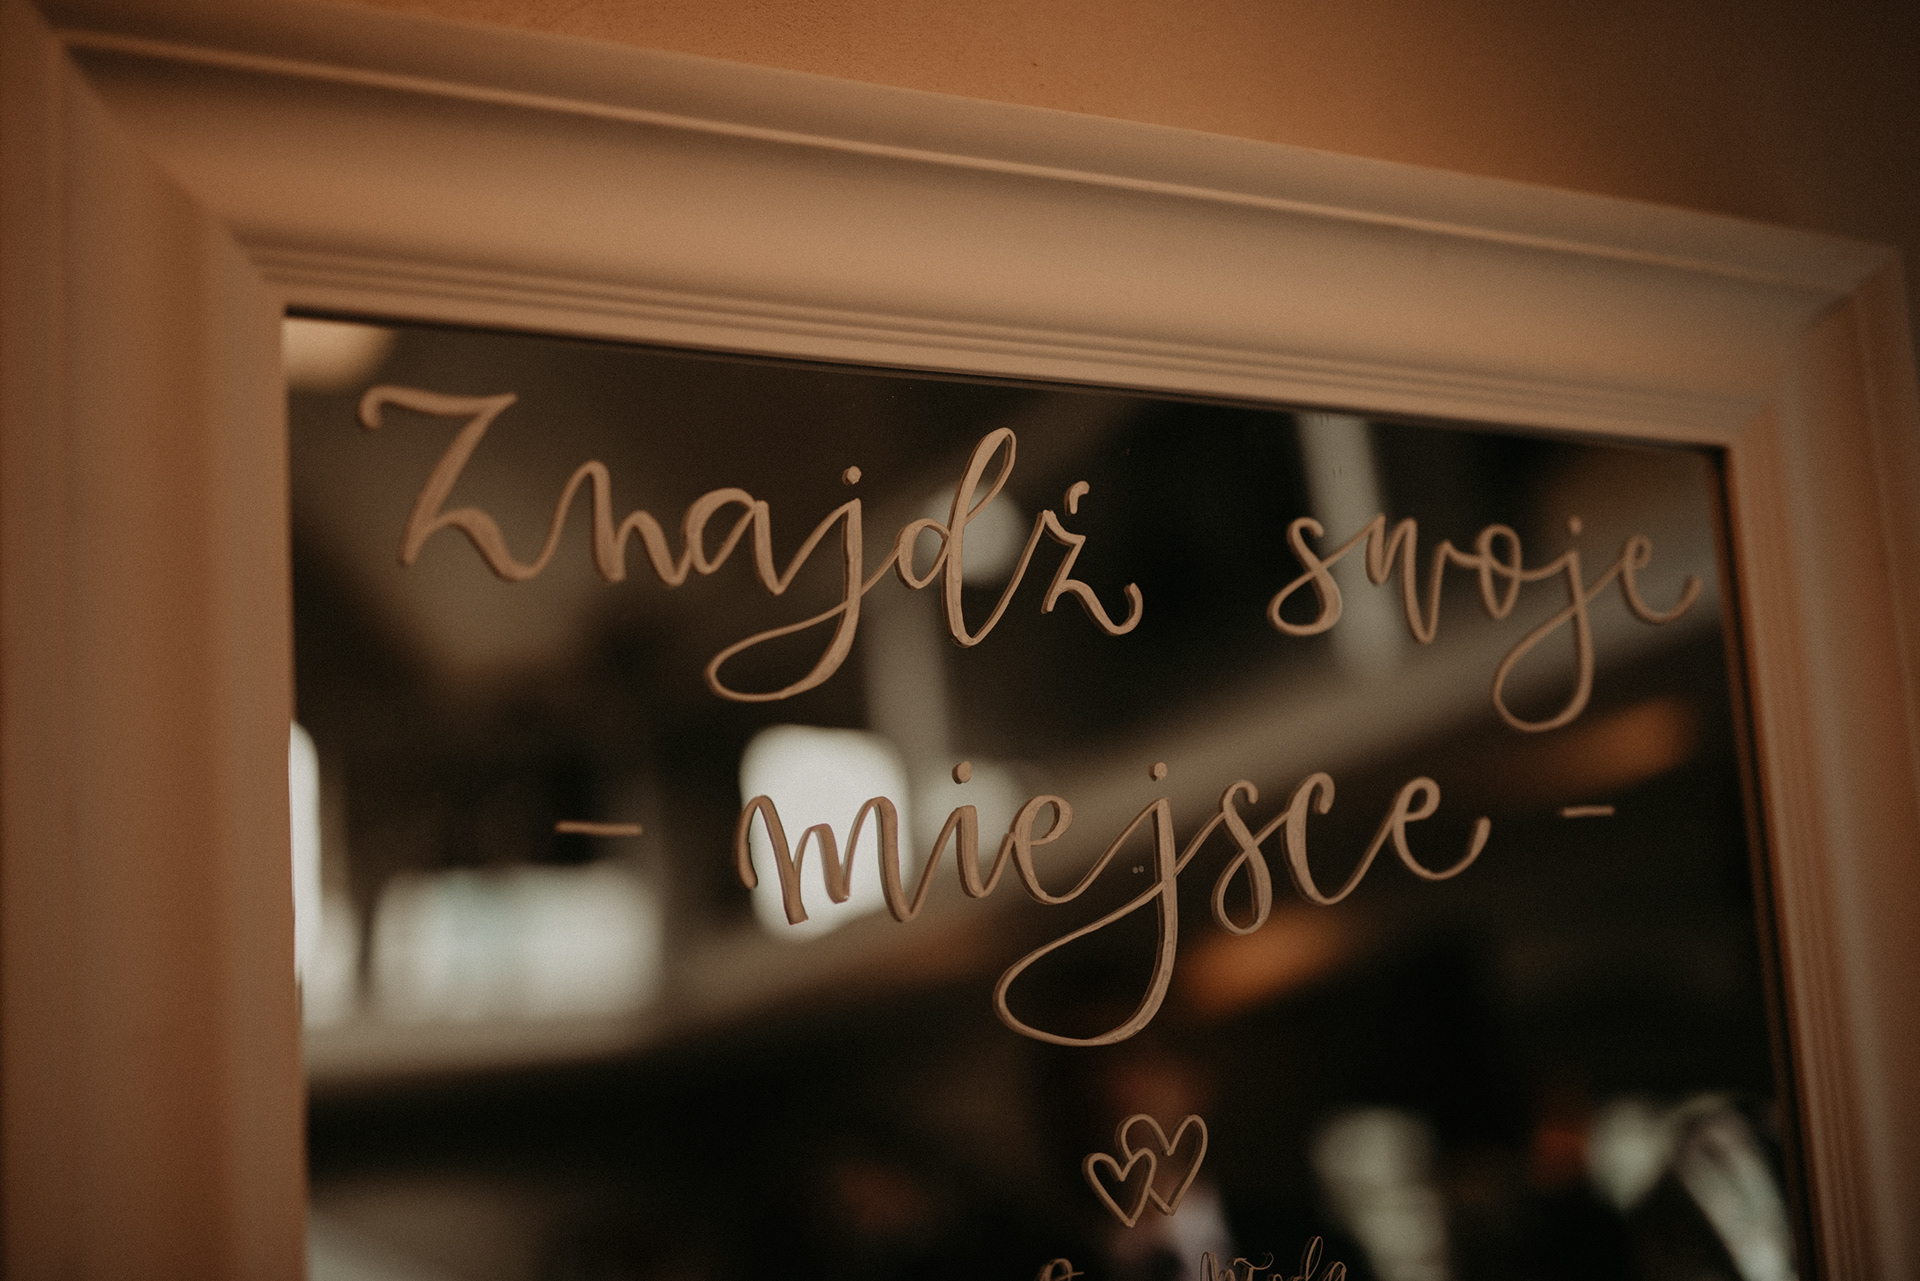 Znajdź swoje
- miejsce -